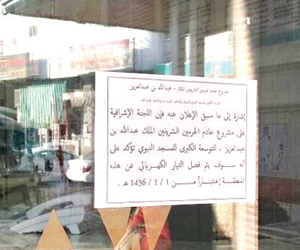 مشروع خادم الحرمين الشريفين الملك عبدالله بن عبدالعزيز
إشارة إلى ما سبق الإعلان عنه فإن اللجنة الإشرافية
على مشروع خادم الحرمين الشريفين الملك عبدالله بن
عبدالعزيز . لتوسعة الكبرى للمسجد النبوي تؤكد على
أنه سوف يتم فصل التيار الكهربائي عن هذه
المنطقة إعتباراً من 1 / 1 / 1436 هـ .